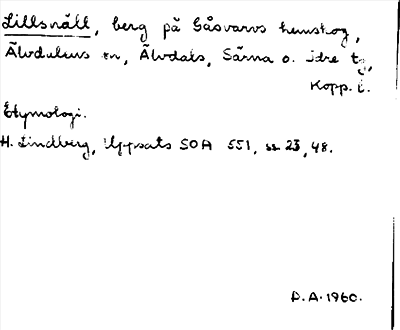 Lillsnäll, berg på Gåsvarvs hemskog,
Älvdalens sn, Älvdals, Särna o. Idre tg,
Kopp. l.
Etymologi.
H. Lindberg, Uppsats SOA 551, ss 23, 48.
D.A. 1960.